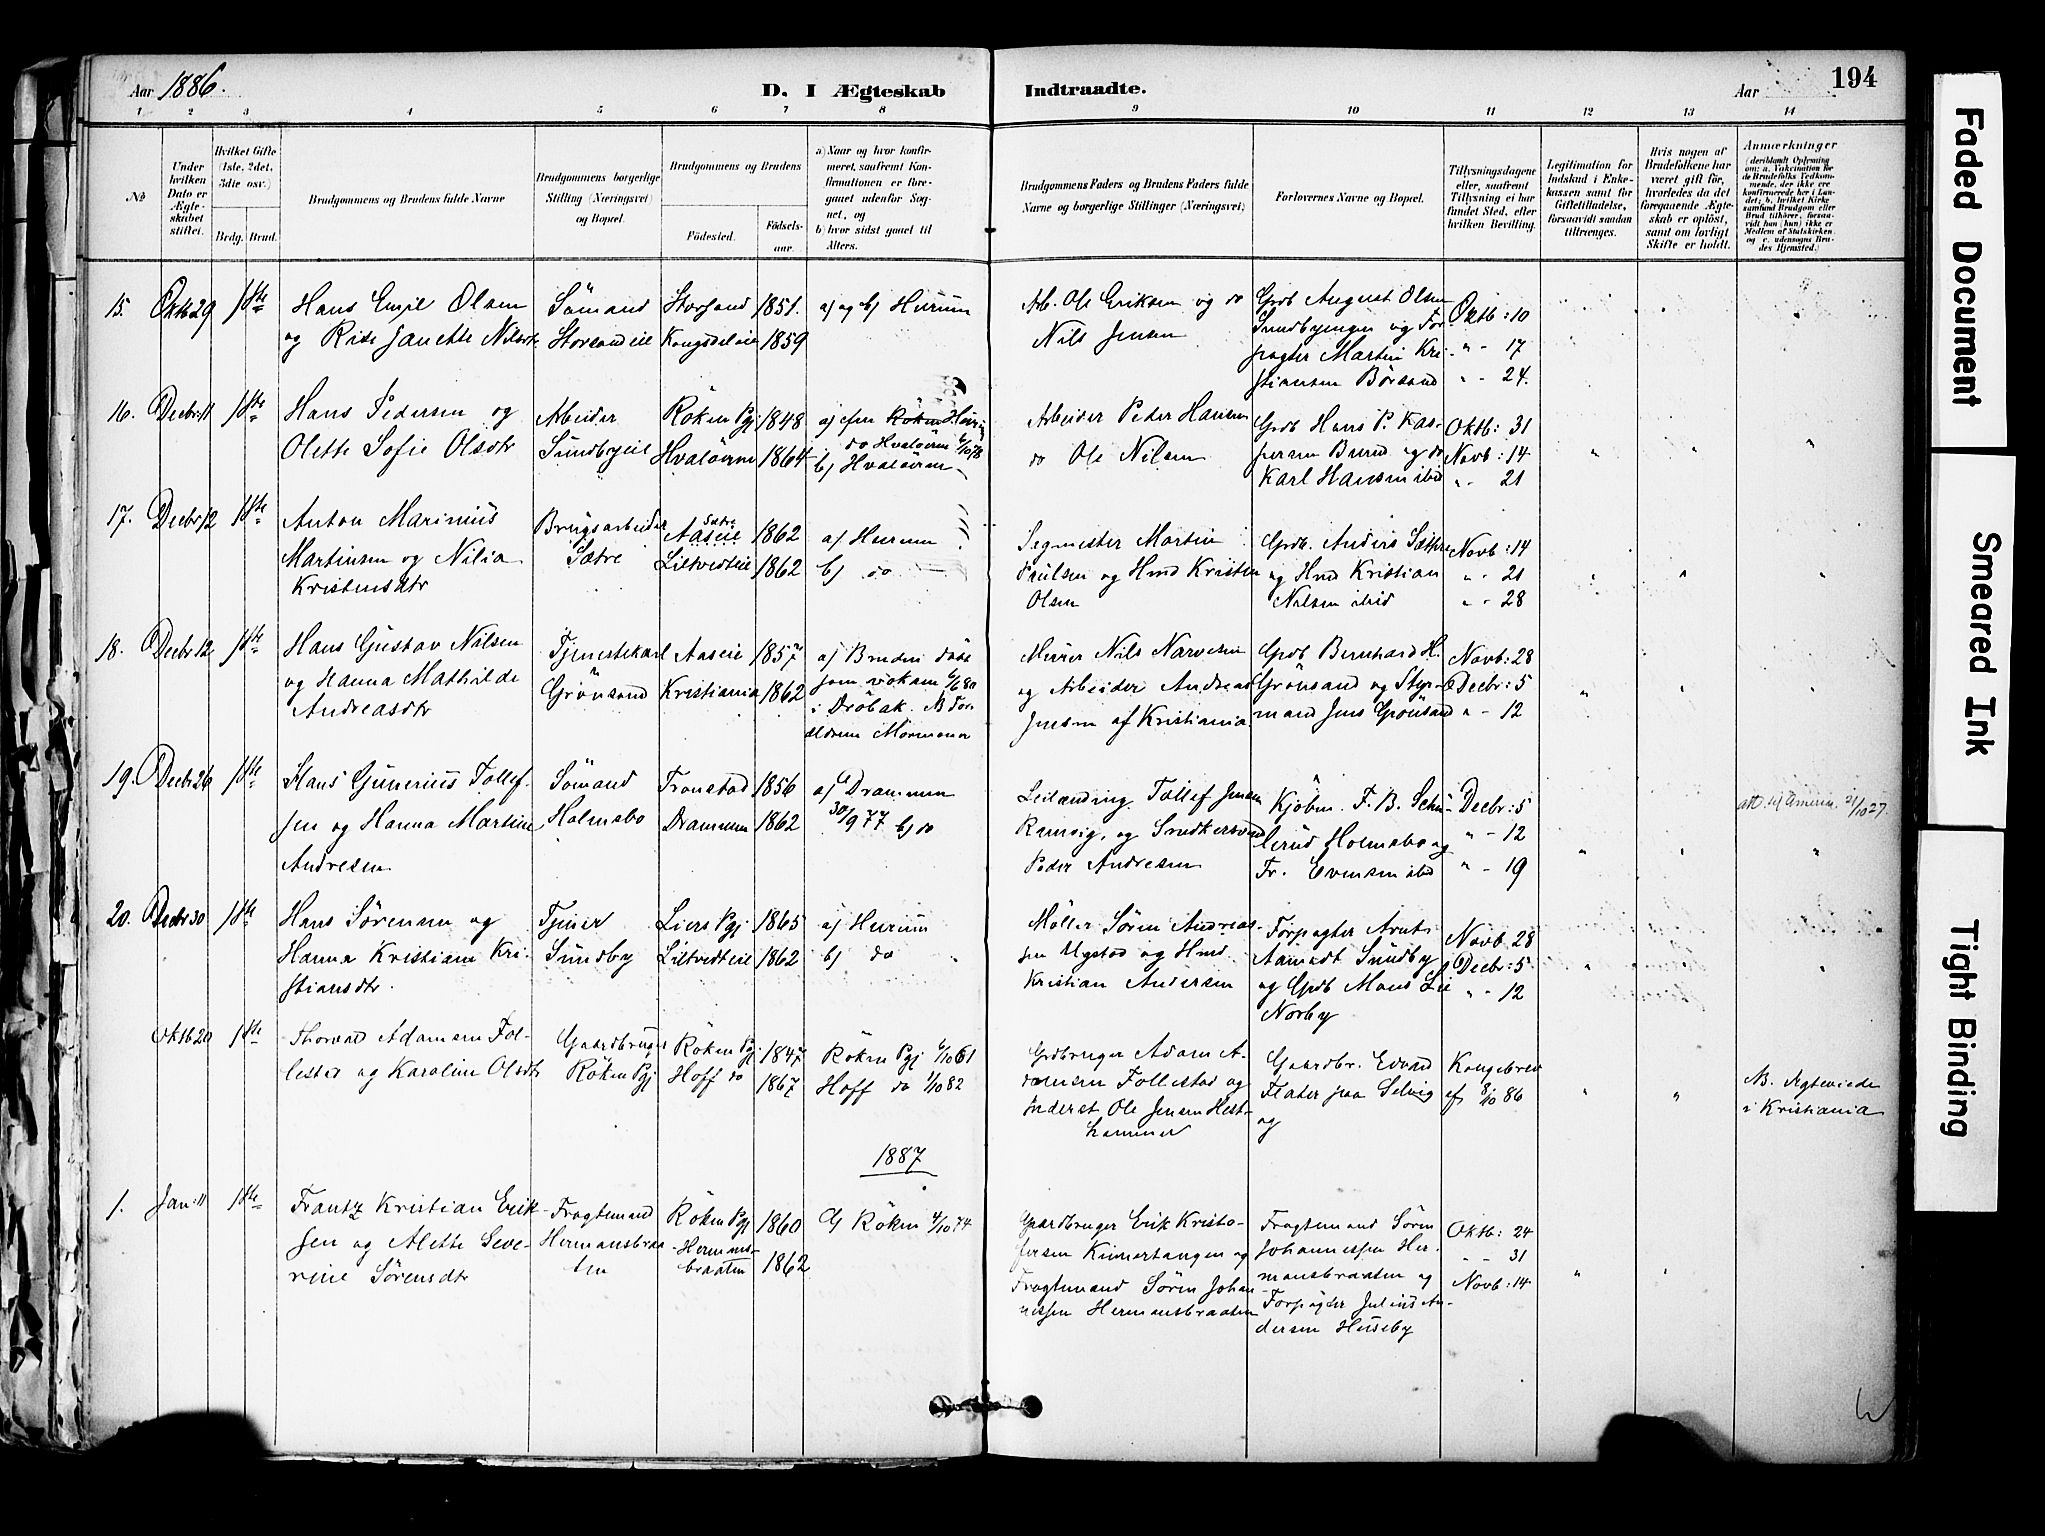 Aar 1886.
D. I Ægteskab Indtraadte.
Aar
194
1 2 3 4 5 6 7 8 9 10 11 12 13 14
No
Under hvilken Dato er Ægteskabet stiftet.
Hvilket Gifte (1ste, 2det, 3die osv.)
Brdg. Brud.
Brudgommens og Brudens fulde Navne
Brudgommens borgerlige Stilling (Næringsvei) og Bopæl.
Brudgommens og Brudens
Fødested. Fødsels-aar.
a) Naar og hvor konfirmeret, saafremt Konfirmationen er foregaaet udenfor Sognet, og
b) hvor sidst gaaet til Alters.
Brudgommens Faders og Brudens Faders fulde Navne og borgerlige Stillinger (Næringsvei)
Forlovernes Navne og Bopæl.
Tillysningsdagene eller, saafremt Tillysning ei har fundet Sted, efter hvilken Bevilling.
Legitimation for Indskud i Enkekassen samt for Giftetilladelse, forsaavidt saadan tiltrænges.
Hvis nogen af Brudefolkene har været gift før, hvorledes da det foregaaende Ægteskab er opløst, samt om lovligt Skifte er holdt.
Anmærkninger
(deriblandt Oplysning om: a. Vaccination for de Brudefolks Vedkommende, der ikke ere konfirmerede her i Landet; b. hvilket Kirkesamfund Brudgom eller Brud tilhører, forsaavidt han (hun) ikke er Medlem af Statskirken og c. udensogns Brudes Hjemsted.)
15. Oktb 29 1ste
Hans Emil Olsen
og Rise Janette Nilsdtr
Sömand
Storsandeie
Storsand 1851.
Kongsdeleie 1859
a) og b) Hurum
Arb. Ole Eriksen og do
Nils Jensen
Grdb August Olsen
Sundbyengen og For-
pagter Martin Kri-
stiansen Börsand
Oktb: 10
" - 17
" - 24.
16. Decbr 11 1ste
Hans Pedersen og
Olette Sofie Olsdtr
Arbeider
Sundbyeie
Röken Pgj 1848
Hvalöerne 1864
a) Röken Hurum
do Hvalöerne 6/10 78
b) Hvalöerne
Arbeider Peder Hansen
do Ole Nilsen
Grdb Hans P. Kas-
persen Brend og do
Karl Hansen ibid
Oktb: 31
Novb: 14
" - 21
17. Decbr 12 1ste
Anton Marinius
Martinsen og Nilia
Kristensdtr
Brugsarbeider
Sætre
Sætre
Aaseie 1862
Liltvedteie 1862
a) Hurum
b) do
Segmester Martin
Paulsen og Hmd Kristen
Olsen
Grdb. Anders Sæthre
og Hmd Kristian
Nilsen ibid
Novb: 14
" - 21
" - 28
18. Decbr 12 1ste
Hans Gustav Nilsen
og Hanna Mathilde
Andreasdtr
Tjenestekarl
Grönsand
Aaseie 1857
Kristiania 1862
a) Bruden döbt
som voksen 6/6 80
i Dröbak. NB For-
ældrene Mormoner
Murer Nils Narvesen
og Arbeider Andreas
Jensen af Kristiania
Grdb Bernhard H.
Grönsand og Styr-
mand Jens Grönsand
Novb: 28
Decbr: 5
" - 12
19. Decbr 26 1ste
Hans Gunerius Tollef-
sen og Hanna Martine
Andresen
Sömand
Holmsbo
Tronstad 1856
Drammen 1862
a) Drammen
30/9 77 b) do
Leilænding Tollef Jensen
Ramvig, og Snedkersvend
Peder Andresen
Kjöbm. F. B. Schu-
lerud Holmsbo og
Fr. Evensen ibid
Decbr: 5
" - 12
" - 19
att. til Amerika 21/10 27.
20. Decbr 30 1ste
Hans Sörensen og
Hanna Kristiane Kri-
stiansdtr.
Tjener
Sundby
Liers Pgj 1865
Liltvedteie 1862
a) Hurum
b) do
Möller Sören Andreas-
sen Ugstad og Hmd
Kristian Andersen
Forpagter Arnt
Aamodt Sundby
og Grdb Mons Lie
Norby
Novb 28
Decbr: 5.
" - 12
Oktb 20 1ste
Thorvald Adamsen Fol-
lestad og Karoline Olsdtr
Gaardbruger
Röken Pgj
Röken Pgj 1847
Hoff do 1867
Röken Pgj 6/10 61
Hoff do 1/10 82
Grdbruger Adam A-
damsen Follestad og
Inderst Ole Jensen Hest-
hammer
Gaardbr. Edvard
Flater paa Selvig
og
Kongebrev
af 8/10 86
NB. Ægteviede
i Kristiania
1887
1. Jan: 11 1ste
Frantz Kristian Erik-
sen og Alette Seve-
rine Sörensdtr
Fragtemand
Hermansbraa-
ten
Röken Pgj 1860
Hermans-
braaten 1862
a) Röken 4/10 74
Gaardbruger Erik Kristo-
fersen Kinnertangen og
Fragtemand Sören Johan-
nesen Hermansbraaten
Fragtemand Sören
Johannessen Her-
mansbraaten og
Forpagter Julius An-
dersen Huseby
Oktb: 24
" - 31
Novb: 14
Faded Document
Smeared Ink
Tight Binding